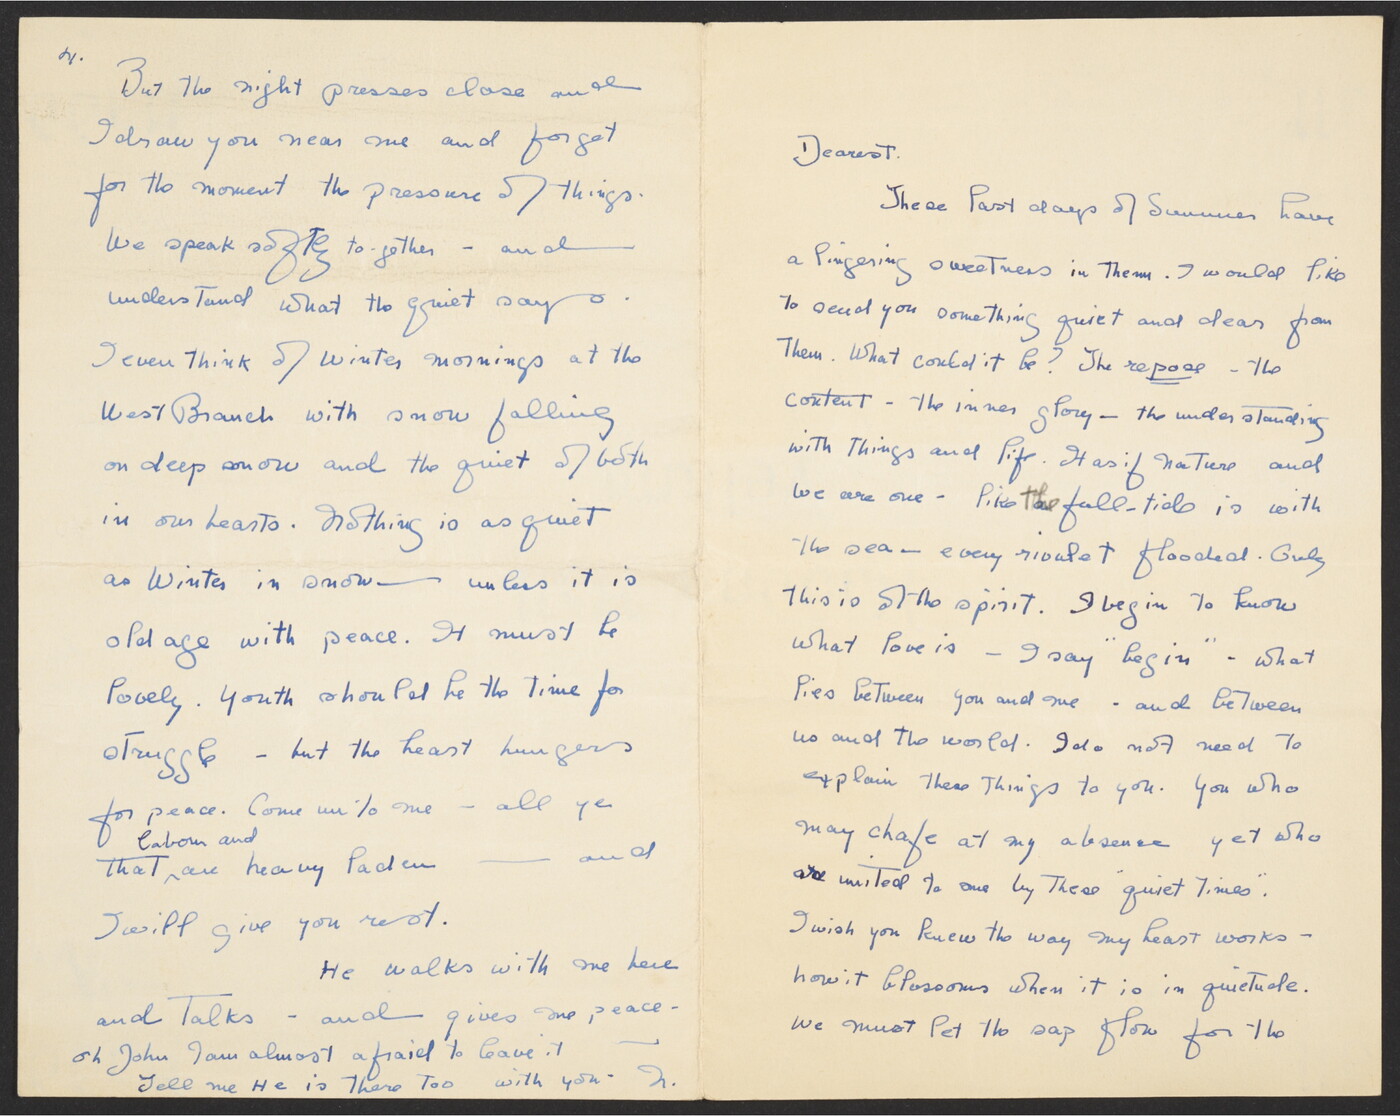 4.
But the night presses close and
I draw you near me and forget
for the moment the pressure of things.
We speak softly together – and
understand what the quiet says.
I even think of Winter mornings at the
West Branch with snow falling
on deep snow and the quiet of both
in our hearts. Nothing is as quiet
as Winter in snow — unless it is
old age with peace. It must be
lovely. Youth should be the time for
struggle – but the heart hungers
for peace. Come unto me – all ye
labour and
that ‸ are heavy laden — and
I will give you rest.
He walks with me here
and talks – and gives me peace –
oh John I am almost afraid to leave it —
Tell me He is there too with you – N.
Dearest.
These last days of Summer have
a lingering sweetness in them. I would like
to send you something quiet and dear from
them. What could it be? The repose – the
content – the inner glory – the understanding
with things and life. It as if nature and
we are one – like the full-tide is with
the sea – every rivulet flooded. Only
this is of the spirit. I begin to know
what love is – I say "begin" – what
lies between you and me – and between
us and the world. I do not need to
explain these things to you. You who
may chafe at my absence yet who
are united to me by these "quiet times".
I wish you knew the way my heart works –
how it blossoms when it is in quietude.
We must let the sap flow for the